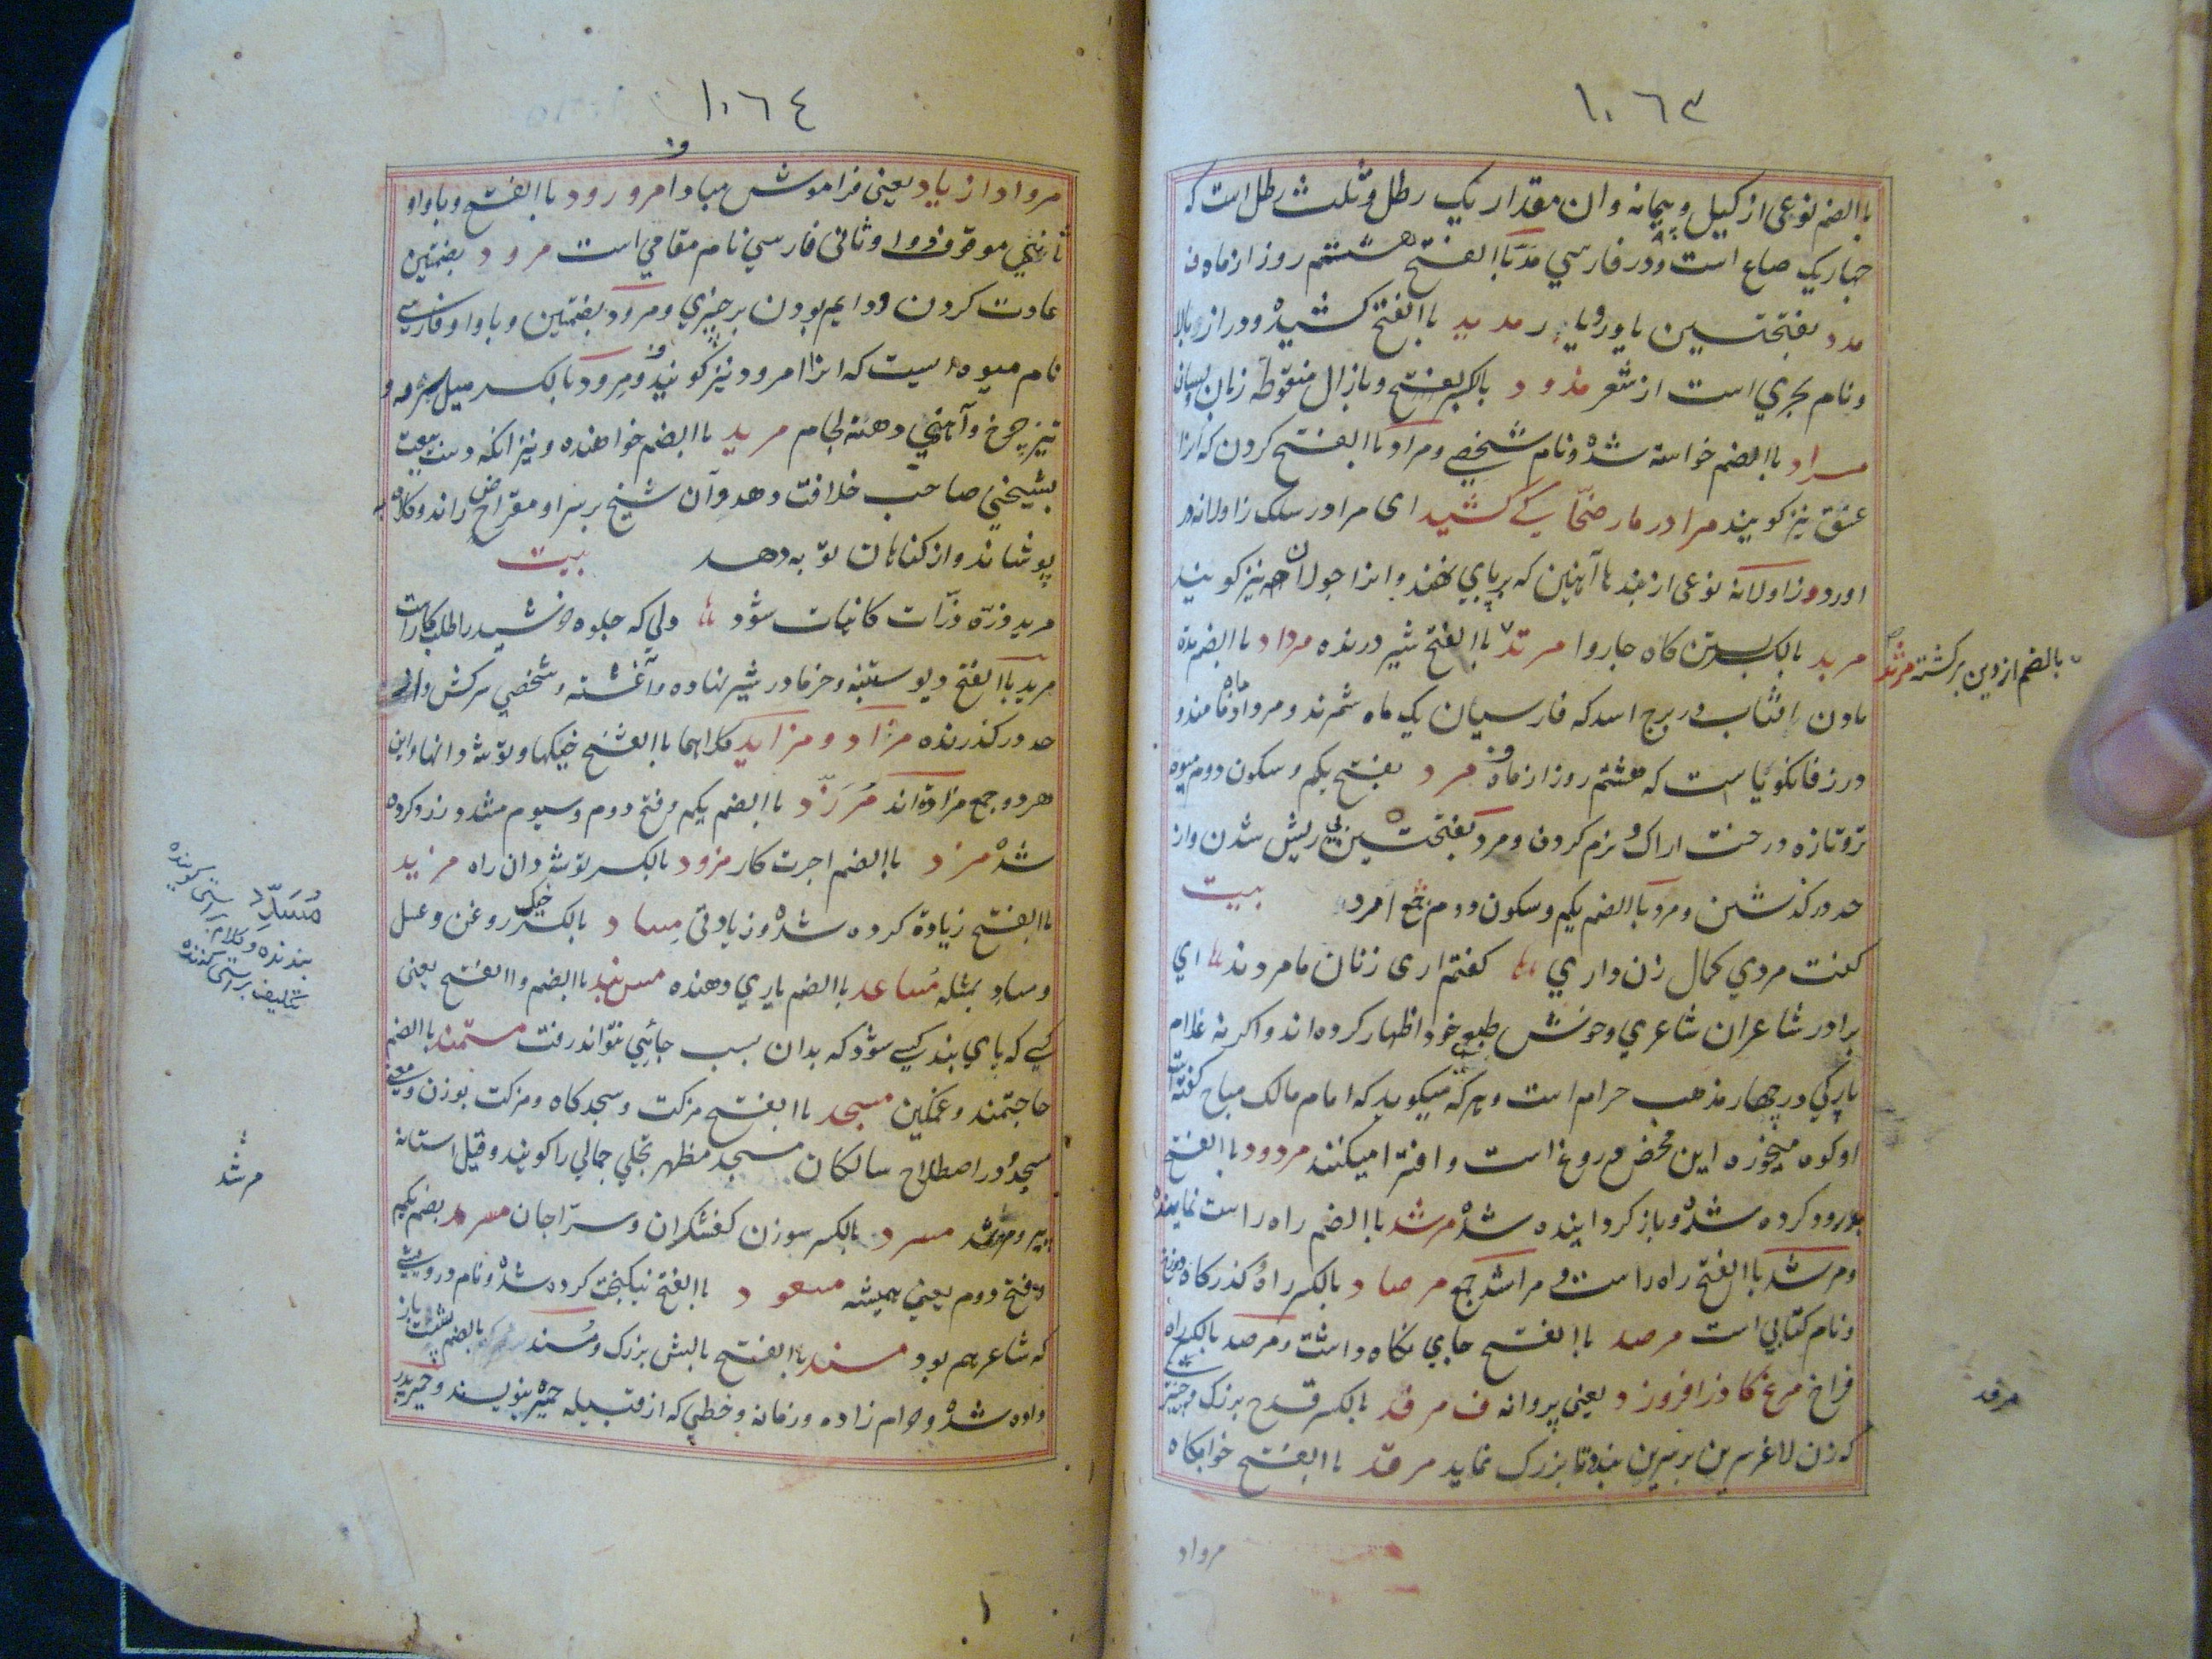 ١٠٦٣
باالضم نوعی از کیل و پیمانه و ان مقدار یک رطل و ثلث رطل است که
چهار یک صاع است و در فارسي مد باالفتح هشتم روز از ماه ف
مدد بفتحتین یاور و یار مدید باالفتح کشیده و دراز و بالا
و نام بحری است از شعر مذود بالکسر
مراد باالضم خواسته شده و نام شخصی و مراد باالفتح کردن که انرا
عنق نیز کویند مرا در مار ضحاک کشید ای مرا در سلک زاولانه
اورد و زاولانه نوعی از بند ها آهنین که بر پای نهند و انرا جولان نیز کویند
مربد بالکسر کاه جاروا مرتد باالفتح شیر درنده مرداد باالضم مدة
ماندن افتاب در برج اسد که فارسیان یک ماه شمرند و مرداد ماه نامند و
در زفانکویا است که هشتم روز از ماه ف مرد بفتح یکم و سکون دوم میوه
تر و تازه درخت اراک و نرم کردن و مرد بفتحتین بی ریش شدن و از
حد در کذشتن و مرد باالضم یکم و سکون دوم جمع امرد بیت
کفت مردی کمال زن داری کفتم اری زنان ما مردند ای
برادر شاعران شاعری و خوش طبعی خود اظهار کرده اند و اکر نه غلام
بارکی در چهار مذهب حرام است و هر که میکوید که امام مالک مباح کفته است
او کوه میخورد این محض دروغ است و افترا میکنند مردود باالفتح
رد کرده شده و باز کردانیده شده مرشد باالضم راه راست نماینده
و مرشد باالفتح راه راست و مراشد جمع مرصاد بالکسر راه و کذرکاه دوزخ
و نام کتابی است مرصد باالفتح جای نکاه داشت و مرصد بالکسر راه
فراخ مرغ کاذر افروزد یعنی پروانه ف مرفد بالکسر قدح بزرک و چیزی
که زن لاغر سرین بر سرین بندد تا بزرک نماید مرقد باالفتح خوابکاه
بالضم از دین برکشته مرتد
مرفد
مرواد
١٠٦٤
مرواد از یاد یعنی فراموش مباد امرورود باالفتح و با واو
ثاني موقوف و واو ثانی فارسي نام مقامي است مرود بضمتین
عادت کردن و دایم بودن بر چیزی و مرود بضمتین و با واو فارسی
نام میوه ایست که انرا امرود نیز کویند و مرود بالکسر میل سرمه و
تیز چرخ و آهنی دهنه لجام مرید باالضم خواهنده و نیز انکه دست بیعت
بشیخي صاحب خلافت دهد و آن شیخ بر سر او مقراض راند و کلاه
پوشاند و از کناهان توبه دهد بیت
مرید ذره ذرات کاینات شود ولی که جلوه خورشید را طلب کار است
مرید باالفتح دیو ستنبه و خرما در شیر نهاده و آغشته و شخصی سرکش و از
حد درکذرنده مزاد و مزاید کلاهما باالفتح خیکها و توشه دانها و این
هر دو جمع مزاده اند مزرد باالضم یکم و فتح دوم و سیوم مشدد زرد کرده
شده مزد باالضم اجرت کار مزود بالکسر توشه دان راه مزید
باالفتح زیادة کرده شده و زیادتی مساد بالکسر خیک روغن و عسل
و ساد بمثله مساعد باالضم یاری دهنده مسند باالضم و االفتح یعنی
کسی که پای بند کسی شود که بدان سبب جائی نتواند رفت مستمند باالضم
حاجتمند و غمکین مسجد باالفتح مزکت و سجدکاه و مزکت بوزن و معنی
مسجد و در اصطلاح سالکان مسجد مظهر تجلی جمالي را کویند و قیل استانه
پیر و مرشد مسرد بالکسر سوزن کفشکران و سراجان مسرمد بضم یکم
و فتح دوم یعني همیشه مسعود باالفتح نیکبخت کرده شده و نام درویشی
که شاعر هم بود مسند باالفتح بالش بزرک و مسند بالضم پشت باز
داده شده و حرام زاده و زمانه و خطی که از قبیله حمیر بنویسند و حمیر پدر
مسدد راستی کوینده
بندنده و کلام
راستی کننده
مرشد